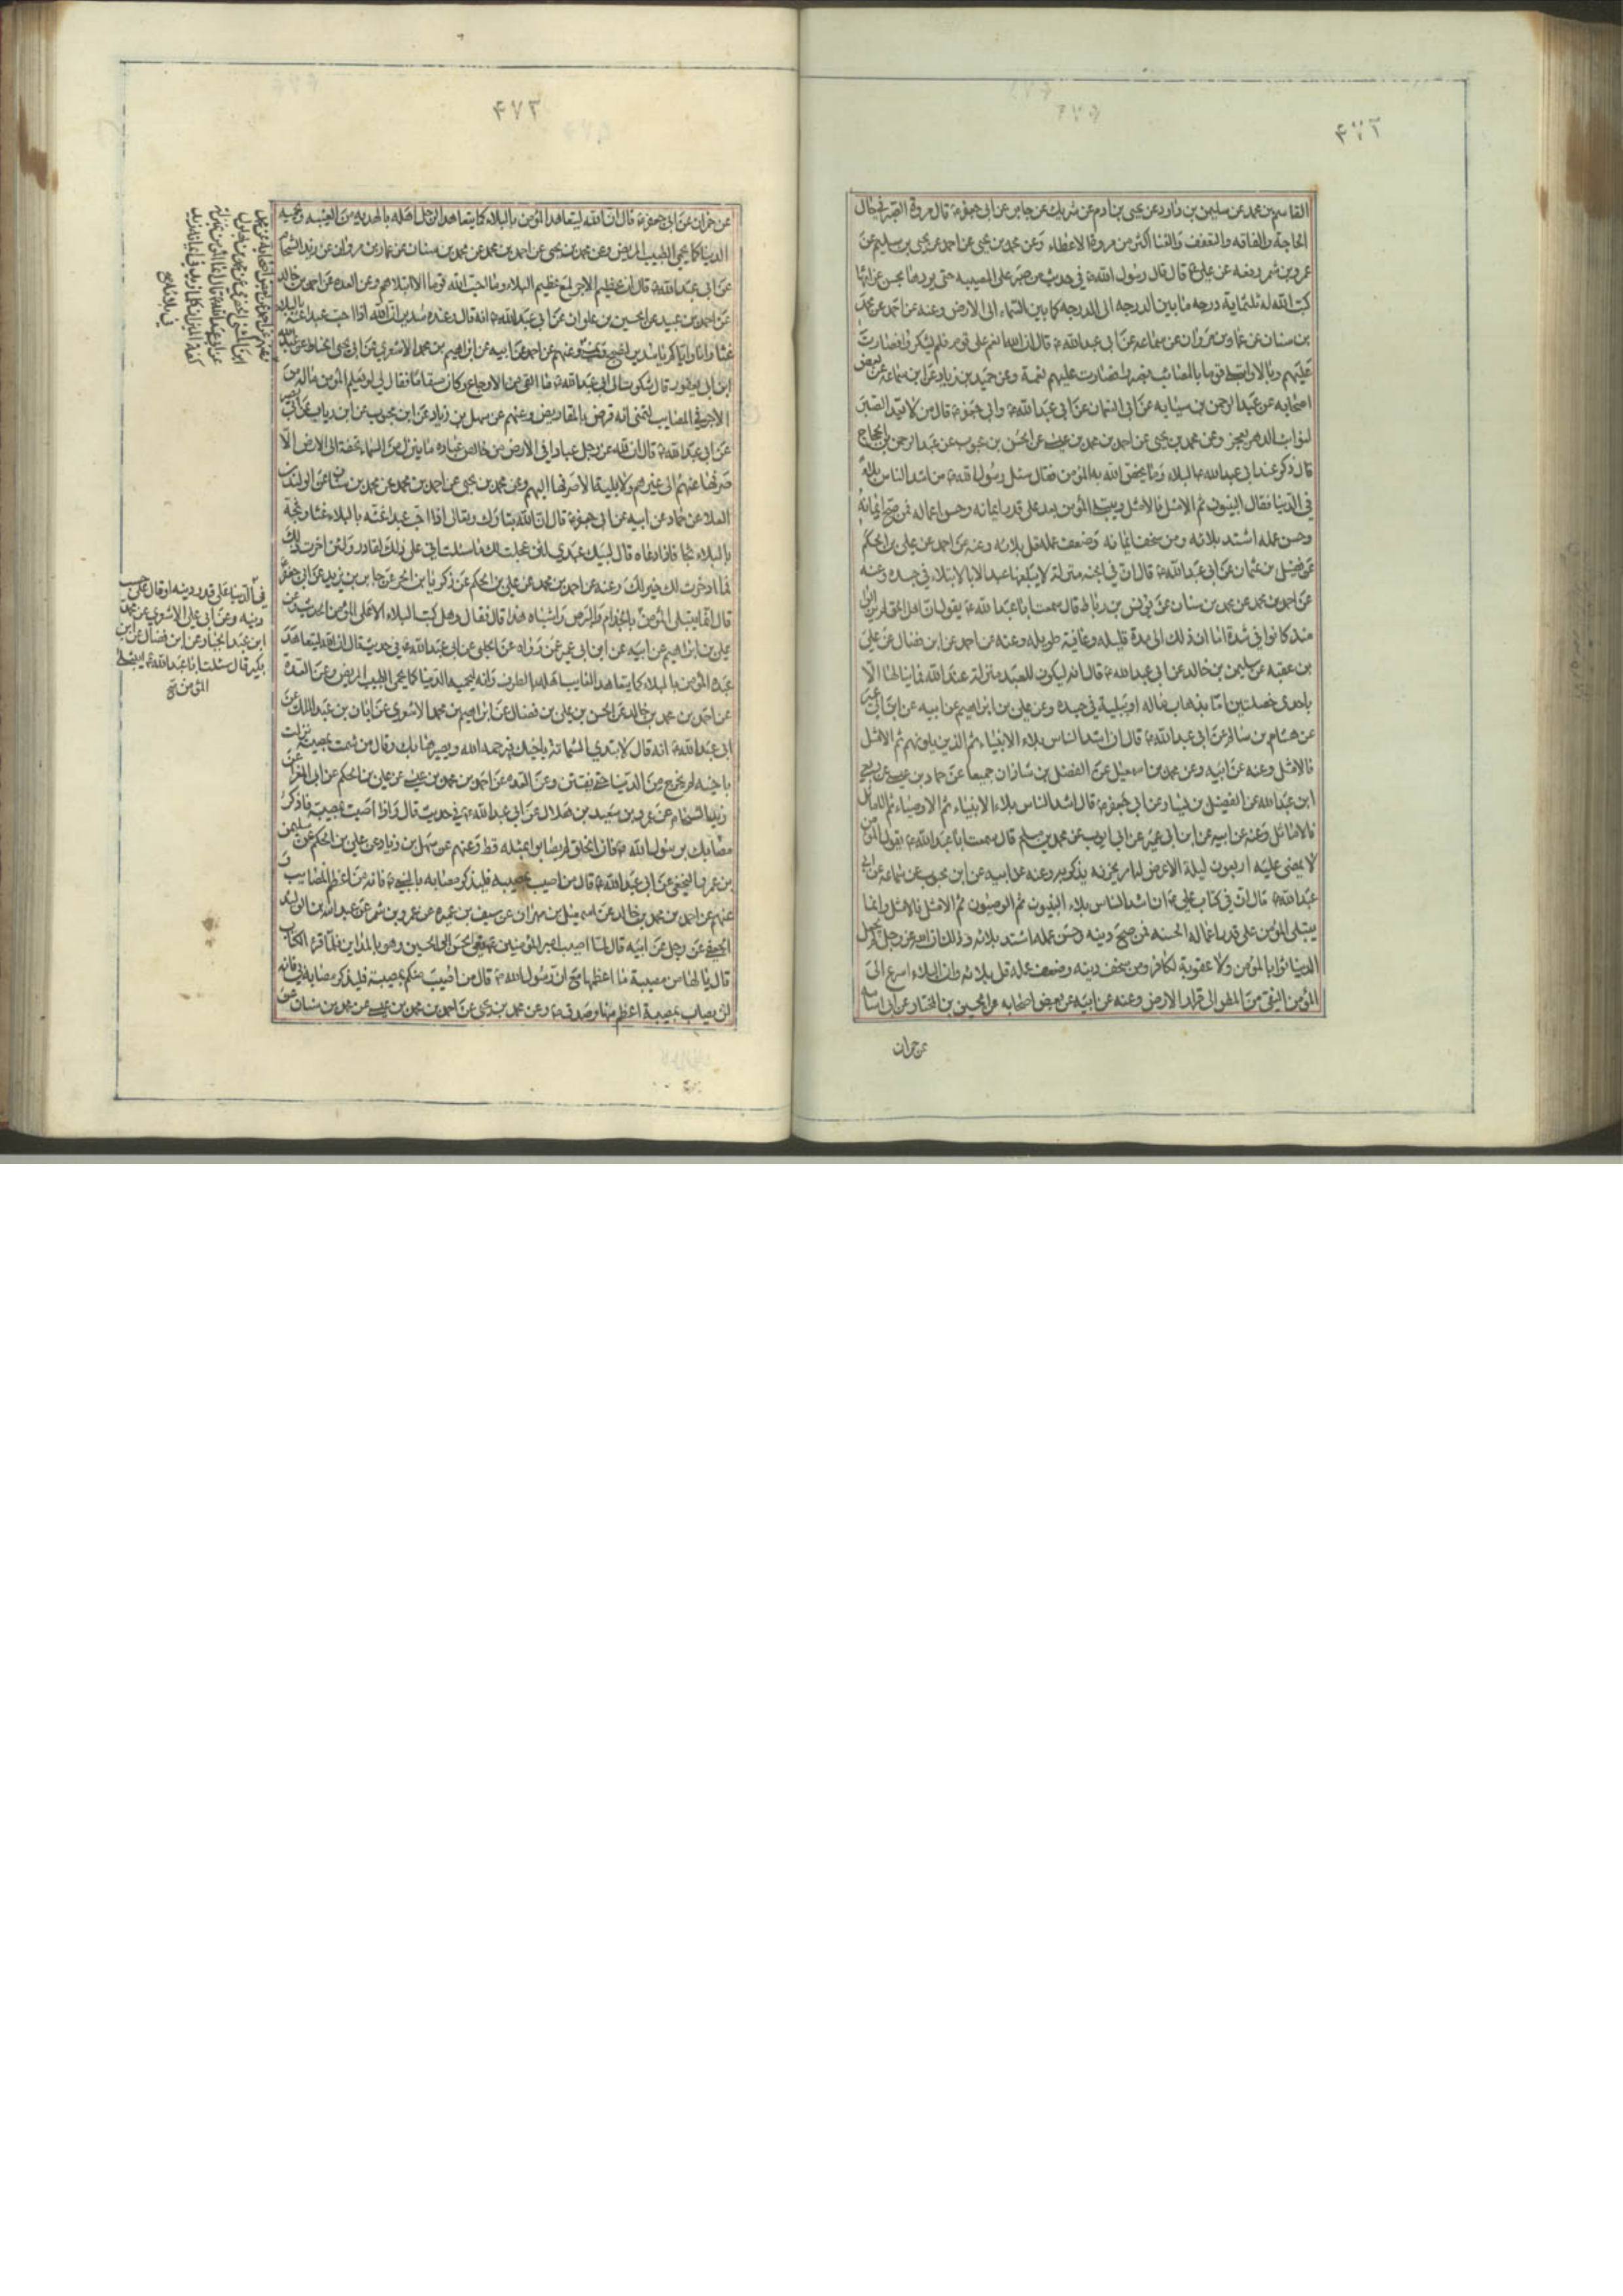 ۴۷۲
القاسم بن محمد عن سليمن بن داود عن يحيى بن ادم عن شريك عن جابر عن ابى جعفر ع قال مروة الصبر في حال
الحاجة والفاقه والتعفف والغنا اكثر من مروة الاعطاء وعن محمد بن يحيى عن احمد عن يحيى بن سليم عن
عمرو بن شمر رفعه عن على ع قال قال رسول الله ص في حديث من صبر على المصيبه حتى يردها بحسن عزائها
كتب الله له ثلثماية درجه ما بين الدرجه الى الدرجه كما بين السماء الى الارض وعنه عن احمد عن محمد
بن سنان عن عمار بن مروان عن سماعه عن ابى عبد الله ع قال ان الله انعم على قوم فلم يشكروا فصارت
عليهم وبالا وابتلى قوما بالمصائب فصبروا فصارت عليهم نعمة وعن حميد بن زياد عن ابن سماعه عن بعض
اصحابه عن عبد الرحمن بن سيابه عن ابى النعمان عن ابى عبد الله ع وابى جعفر ع قال من لا يعد الصبر
لنوائب الدهر يعجز وعن محمد بن يحيى عن احمد بن محمد بن عيسى عن الحسن بن محبوب عن عبد الرحمن بن الحجاج
قال ذكر عند ابى عبد الله ع البلاء وما يخص الله به المؤمن فقال سئل رسول الله ص من اشد الناس بلاء
في الدنيا فقال النبيون ثم الامثل فالامثل ويبتلى المؤمن بعد على قدر ايمانه وحسن اعماله فمن صح ايمانه
وحسن عمله اشتد بلائه ومن سخف ايمانه وضعف عمله قل بلائه وعنه عن احمد عن على بن الحكم
عن فضيل بن عثمان عن ابى عبد الله ع قال ان في الجنه منزلة لا يبلغها عبد الا بالابتلاء في جسده وعنه
عن احمد بن محمد عن محمد بن سنان عن يونس بن رباط قال سمعت ابا عبد الله ع يقول ان اهل الحق لم يزالوا
منذ كانوا في شدة اما ان ذلك الى مدة قليله وعافية طويله وعنه عن احمد عن ابن فضال عن على
بن عقبه عن سليمن بن خالد عن ابى عبد الله ع قال انه ليكون للعبد منزلة عند الله فما ينالها الا
باحدى خصلتين اما بذهاب ماله او ببلية في جسده وعن على بن ابراهيم عن ابيه عن ابن ابى عمير
عن هشام بن سالم عن ابى عبد الله ع قال ان اشد الناس بلاء الانبياء ثم الذين يلونهم ثم الامثل
فالامثل وعنه عن ابيه وعن محمد بن اسمعيل عن الفضل بن شاذان جميعا عن حماد بن عيسى عن ربعي
ابن عبد الله عن الفضيل بن يسار عن ابى جعفر ع قال اشد الناس بلاء الانبياء ثم الاوصياء ثم الاماثل
فالاماثل وعنه عن ابيه عن ابن ابى عمير عن ابى ايوب عن محمد بن مسلم قال سمعت ابا عبد الله ع يقول المؤمن
لا يمضى عليه اربعون ليلة الا عرض له امر يحزنه يذكر به وعنه عن ابيه عن ابن محبوب عن سماعه عن ابى
عبد الله ع قال ان في كتاب على ع ان اشد الناس بلاء النبيون ثم الوصيون ثم الامثل فالامثل وانما
يبتلى المؤمن على قدر اعماله الحسنه فمن صح دينه وحسن عمله اشتد بلائه وذلك ان الله عز وجل لم يجعل
الدنيا ثوابا لمؤمن ولا عقوبة لكافر ومن سخف دينه وضعف عمله قل بلائه وان البلاء اسرع الى
المؤمن التقى من المطر الى قرار الارض وعنه عن ابيه عن بعض اصحابه عن الحسين بن المختار عن ابى اسامه
عن حمران
۴۷۳
عن حمران عن ابى جعفر ع قال ان الله ليتعاهد المؤمن بالبلاء كما يتعاهد الرجل اهله بالهديه من الغيبه ويحميه
الدنيا كما يحمي الطبيب المريض وعن محمد بن يحيى عن احمد بن محمد عن محمد بن سنان عن عمار بن مروان عن زيد الشحام
عن ابى عبد الله ع قال ان عظيم الاجر لمع عظيم البلاء وما احب الله قوما الا ابتلاهم وعن العده عن احمد بن خالد
عن احمد بن عبيد عن الحسين بن علوان عن ابى عبد الله ع انه قال وعنده سدير ان الله اذا احب عبدا غته بالبلاء
غتا وانا واياكم يا سدير لنصبح به ونمسى وعنهم عن احمد عن ابيه عن ابراهيم بن محمد الاشعري عن ابى يحيى الحناط عن عبد الله
ابن ابى يعفور قال شكوت الى ابى عبد الله ع ما القى من الاوجاع وكان مسقاما فقال لي لو يعلم المؤمن ما له من
الاجر في المصايب لتمنى انه قرض بالمقاريض وعنهم عن سهل بن زياد عن ابن محبوب عن ابن رياب عن ابى بصير
عن ابى عبد الله ع قال ان لله عز وجل عبادا في الارض من خالص عباده ما ينزل من السماء تحفة الى الارض الا
صرفها عنهم الى غيرهم ولا بلية الا صرفها اليهم وعن محمد بن يحيى عن احمد بن محمد عن محمد بن سنان عن الوليد بن
العلا عن حماد عن ابيه عن ابى جعفر ع قال ان الله تبارك وتعالى اذا احب عبدا غته بالبلاء غتا وثجه
بالبلاء ثجا فاذا دعاه قال لبيك عبدي لئن عجلت لك ما سئلت انى على ذلك لقادر ولئن ادخرت لك
فما ادخرت لك خير لك وعنه عن احمد بن محمد عن على بن الحكم عن زكريا بن الحر عن جابر بن يزيد عن ابى جعفر
قال انما يبتلى المؤمن في الدنيا على قدر دينه او قال على حسب
دينه وعن ابى على الاشعري عن محمد
ابن عبد الجبار عن ابن فضال عن ابن
بكير قال سئلت ابا عبد الله ع ايبتلى
المؤمن صح
بالجذام والبرص واشباه هذا قال فقال وهل كتب البلاء الا على المؤمن الحديث وعن
على بن ابراهيم عن ابيه عن ابن ابى عمير عمن رواه عن الحلبى عن ابى عبد الله ع في حديث قال ان الله ليتعاهد
عبده المؤمن بالبلاء كما يتعاهد الغايب اهله بالطرف وانه ليحميه الدنيا كما يحمي الطبيب المريض وعن العدة
عن احمد بن محمد بن خالد عن الحسن بن على بن فضال عن ابراهيم بن محمد الاشعري عن ابان بن عبد الملك عن
ابى عبد الله ع انه قال لا تبدي الشماتة باخيك فيرحمه الله ويصيرها بك وقال من شمت بمصيبة نزلت
باخيه لم يخرج من الدنيا حتى يفتتن وعن العده عن احمد بن محمد بن عيسى عن على بن الحكم عن ابى المغرا عن
زيد الشحام عن عمرو بن سعيد بن هلال عن ابى عبد الله ع في حديث قال واذا اصبت بمصيبة فاذكر
مصابك برسول الله ص فان الخلق لم يصابوا بمثله قط وعنهم عن سهل بن زياد عن على بن الحكم عن سليمن
بن عمرو النخعى عن ابى عبد الله ع قال من اصيب بمصيبه فليذكر مصابه بالنبى ص فانه من اعظم المصايب و
عنهم عن احمد بن محمد بن خالد عن اسمعيل بن مهران عن سيف بن عميره عن عمرو بن شمر عن عبد الله بن الوليد
الجعفي عن رجل عن ابيه قال لما اصيب امير المؤمنين ع نعى الحسن الى الحسين وهو بالمداين فلما قرء الكتاب
قال يا لها من مصيبة ما اعظمها مع ان رسول الله ص قال من اصيب منكم بمصيبة فليذكر مصابه بي فانه
لن يصاب بمصيبة اعظم منها وصدق ص وعن محمد بن يحيى عن احمد بن محمد بن عيسى عن محمد بن سنان عن